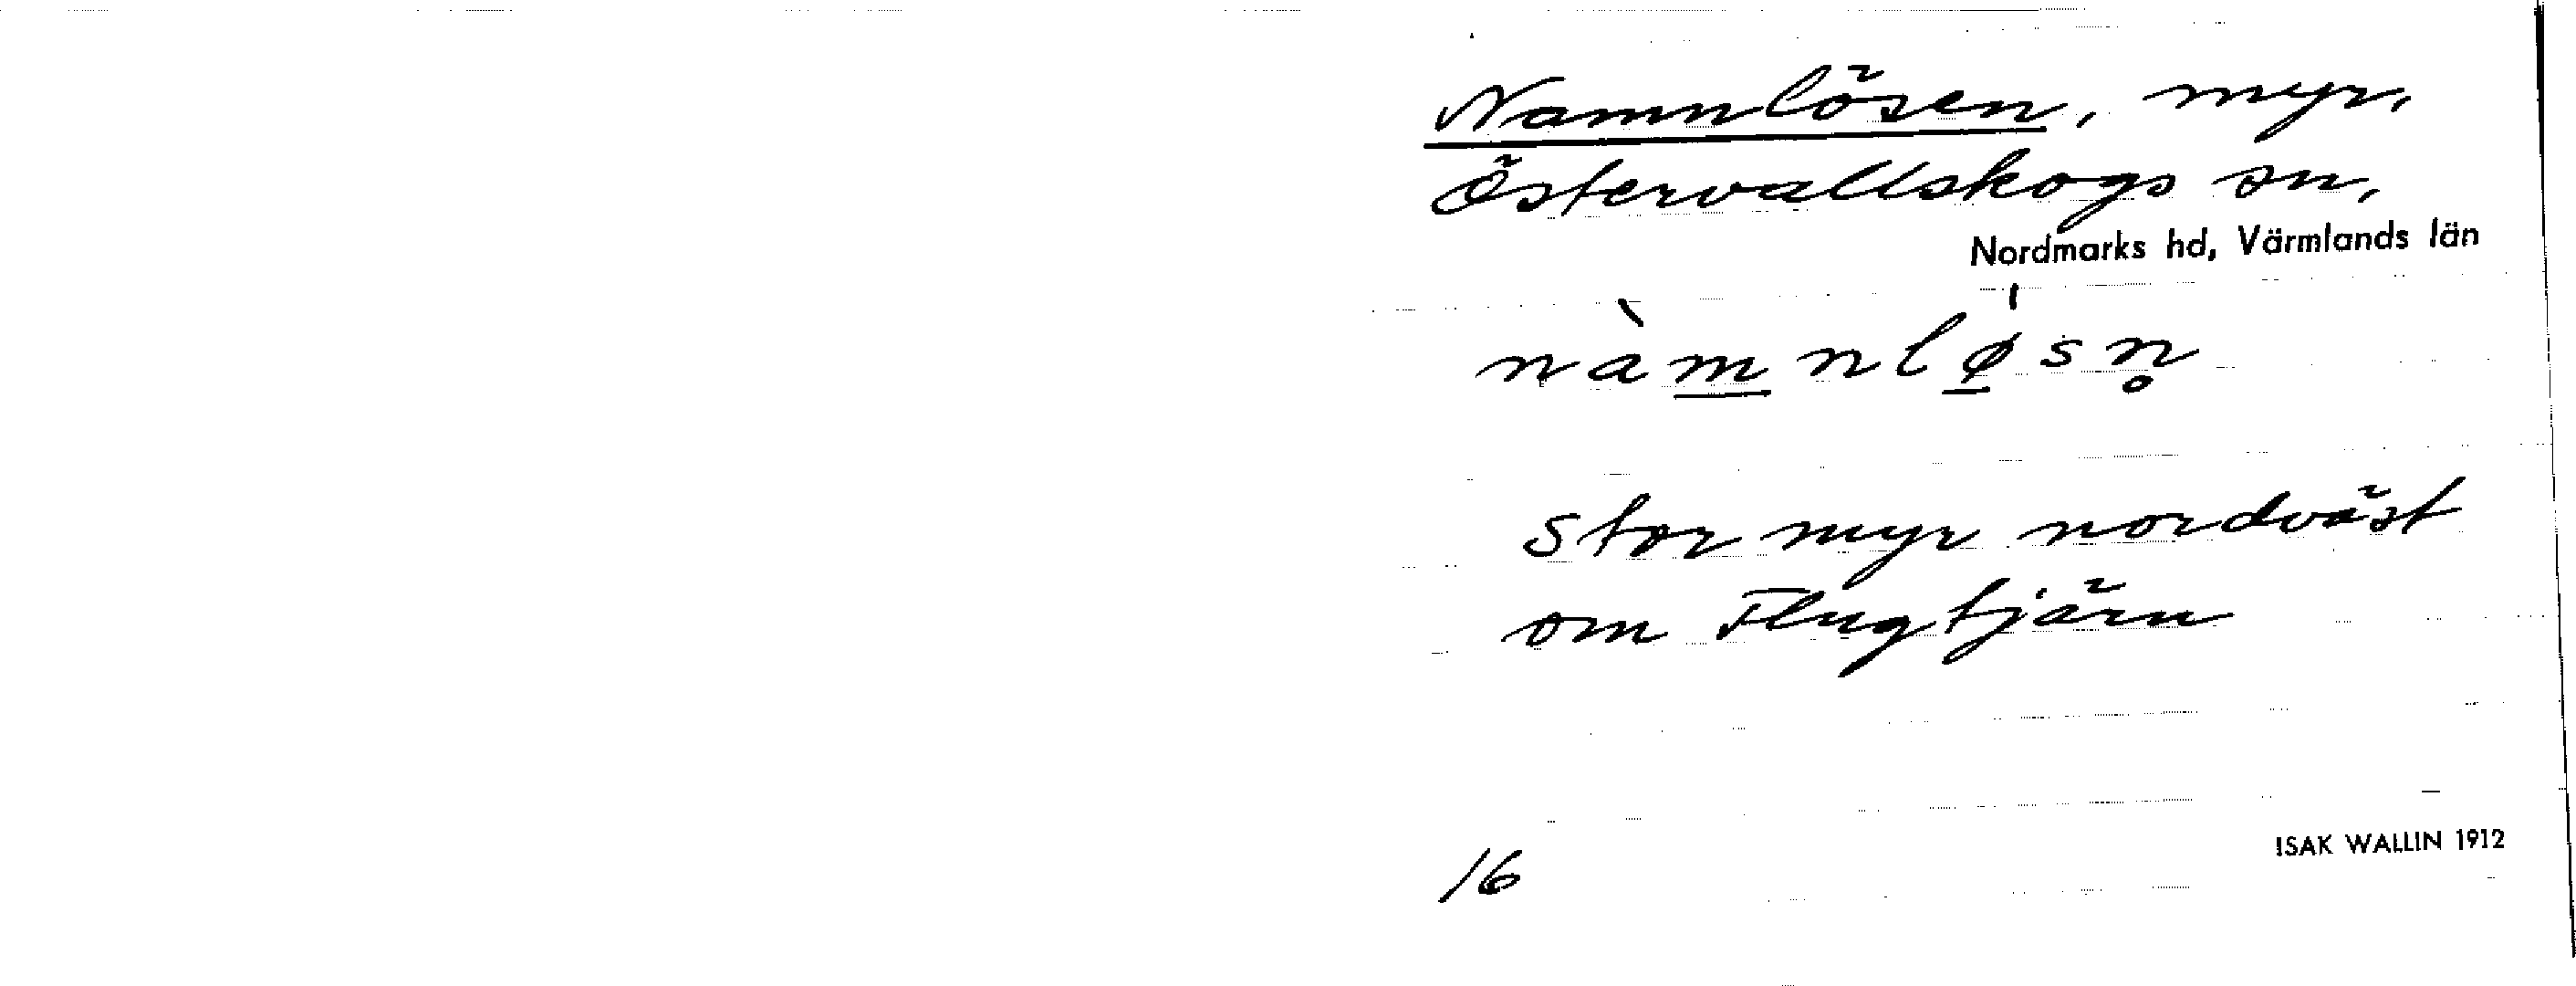 Namnlösen, myr,
Östervallskogs sn,
Nordmarks hd, Värmlands län
nàm̲nlǿ̲sn̥
Stor myr nordväst
om Flugtjärn
16
ISAK WALLIN 1912